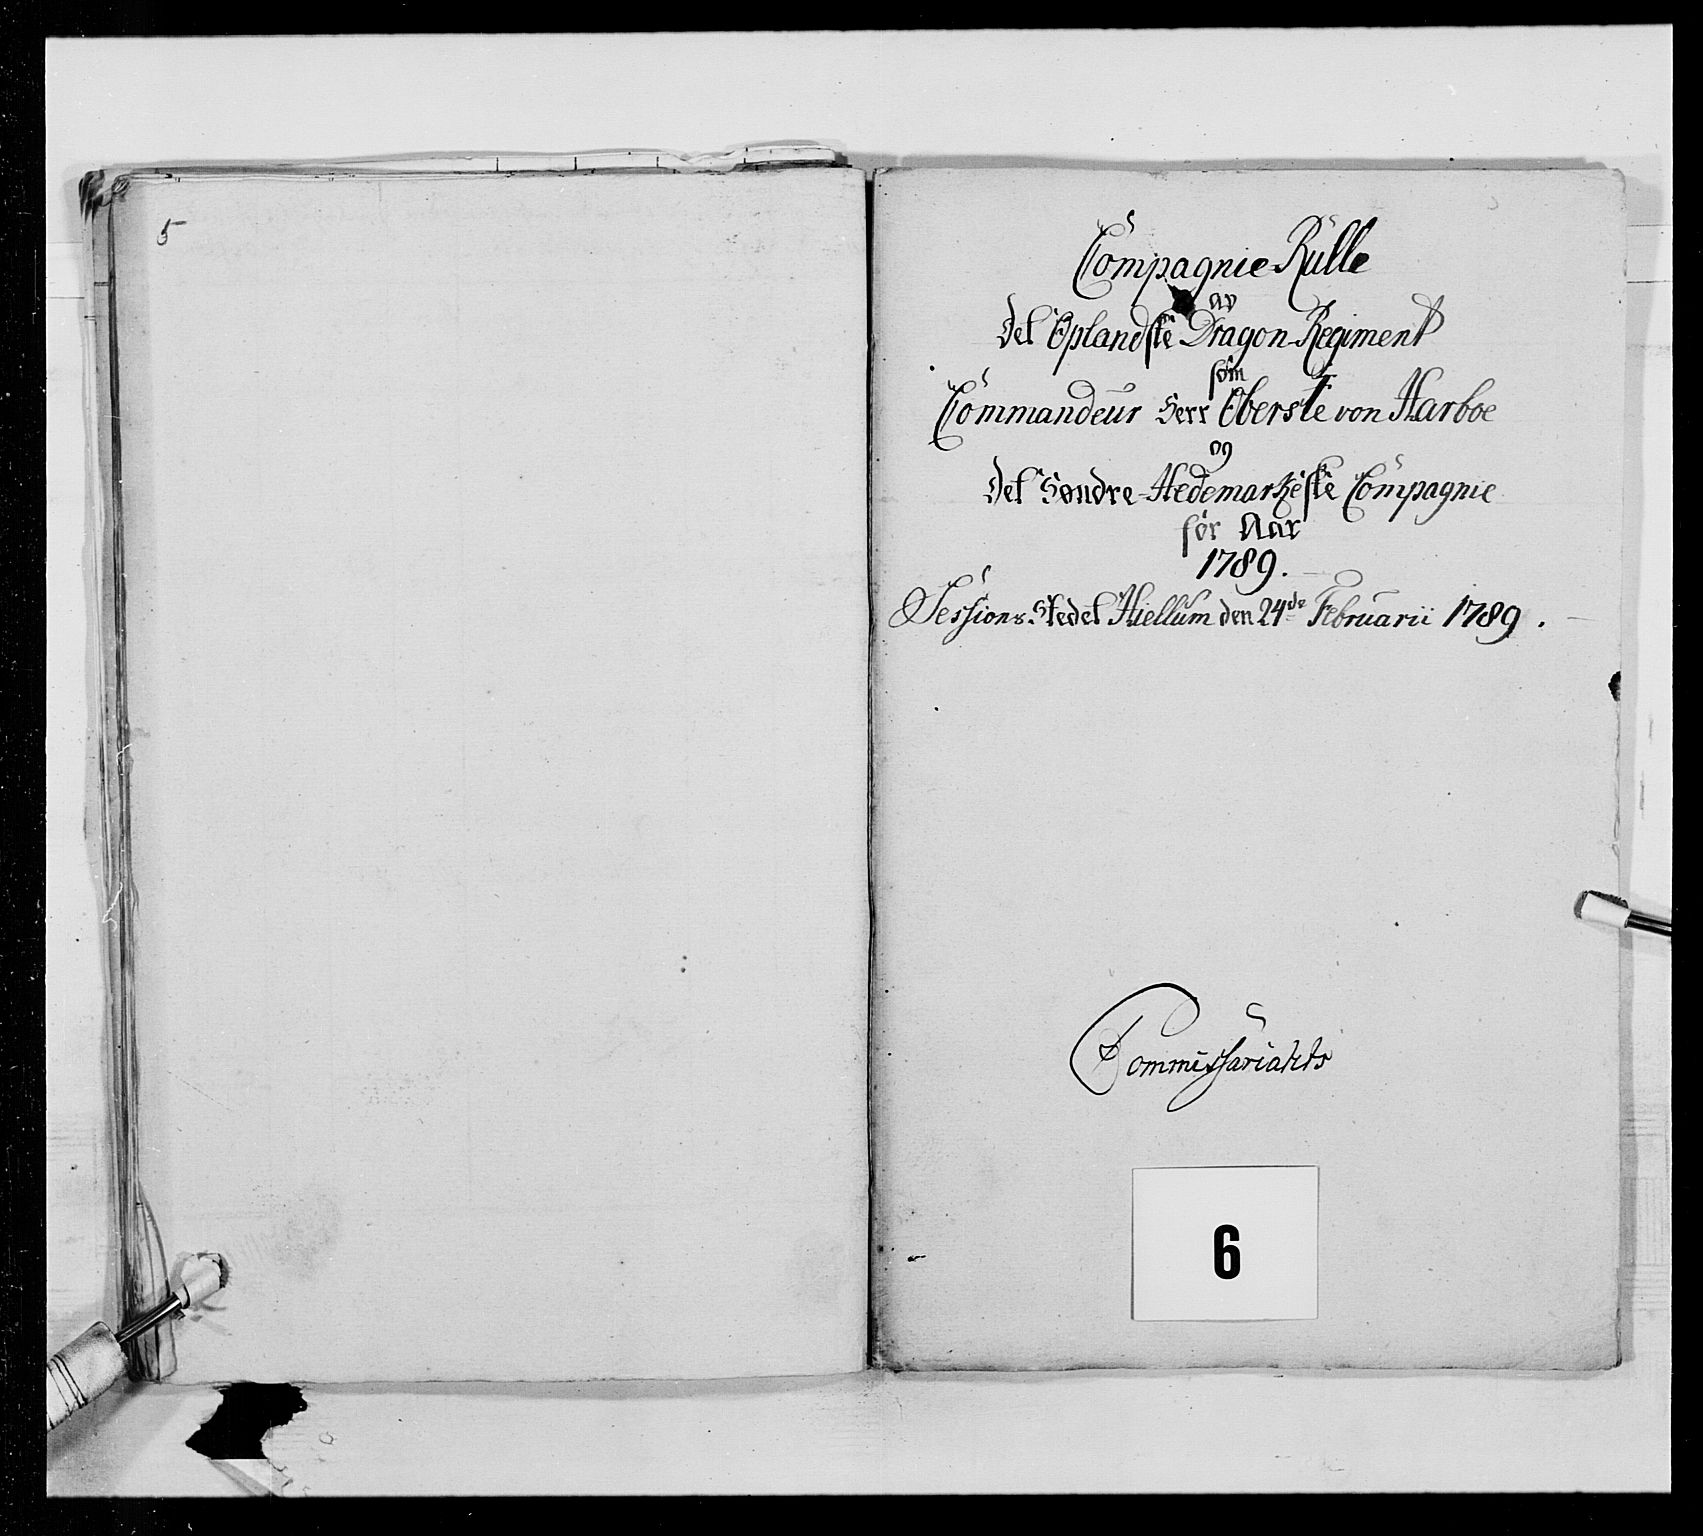 5
Compagnie-Rulle
av
Det Oplandske Dragon-Regiment
som
Commandeur Herr Oberste von Harboe
og
Det Søndre-Hedemarkeske Compagnie
for Aar
1789.
Sessions-Stedet Hiellum den 24de Februarii 1789.
Commissariatets
6